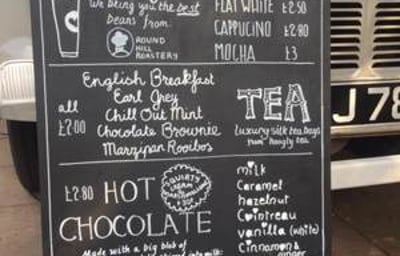 we bring you the best
beans from:
ROUND
HILL
ROASTERY
FLAT WHITE £2.50
CAPPUCINO £2.80
MOCHA £3
English Breakfast
Earl Grey
all
£2.00
Chill Out Mint
Chocolate Brownie
Marzipan Rooibos
TEA
luxury silk tea bags
from
£2.80 HOT
CHOCOLATE
SQUIRTY
CREAM
Made with a big blob of
milk
Caramel
hazelnut
Cointreau
vanilla (white)
Cinnamon &
ginger
J 78